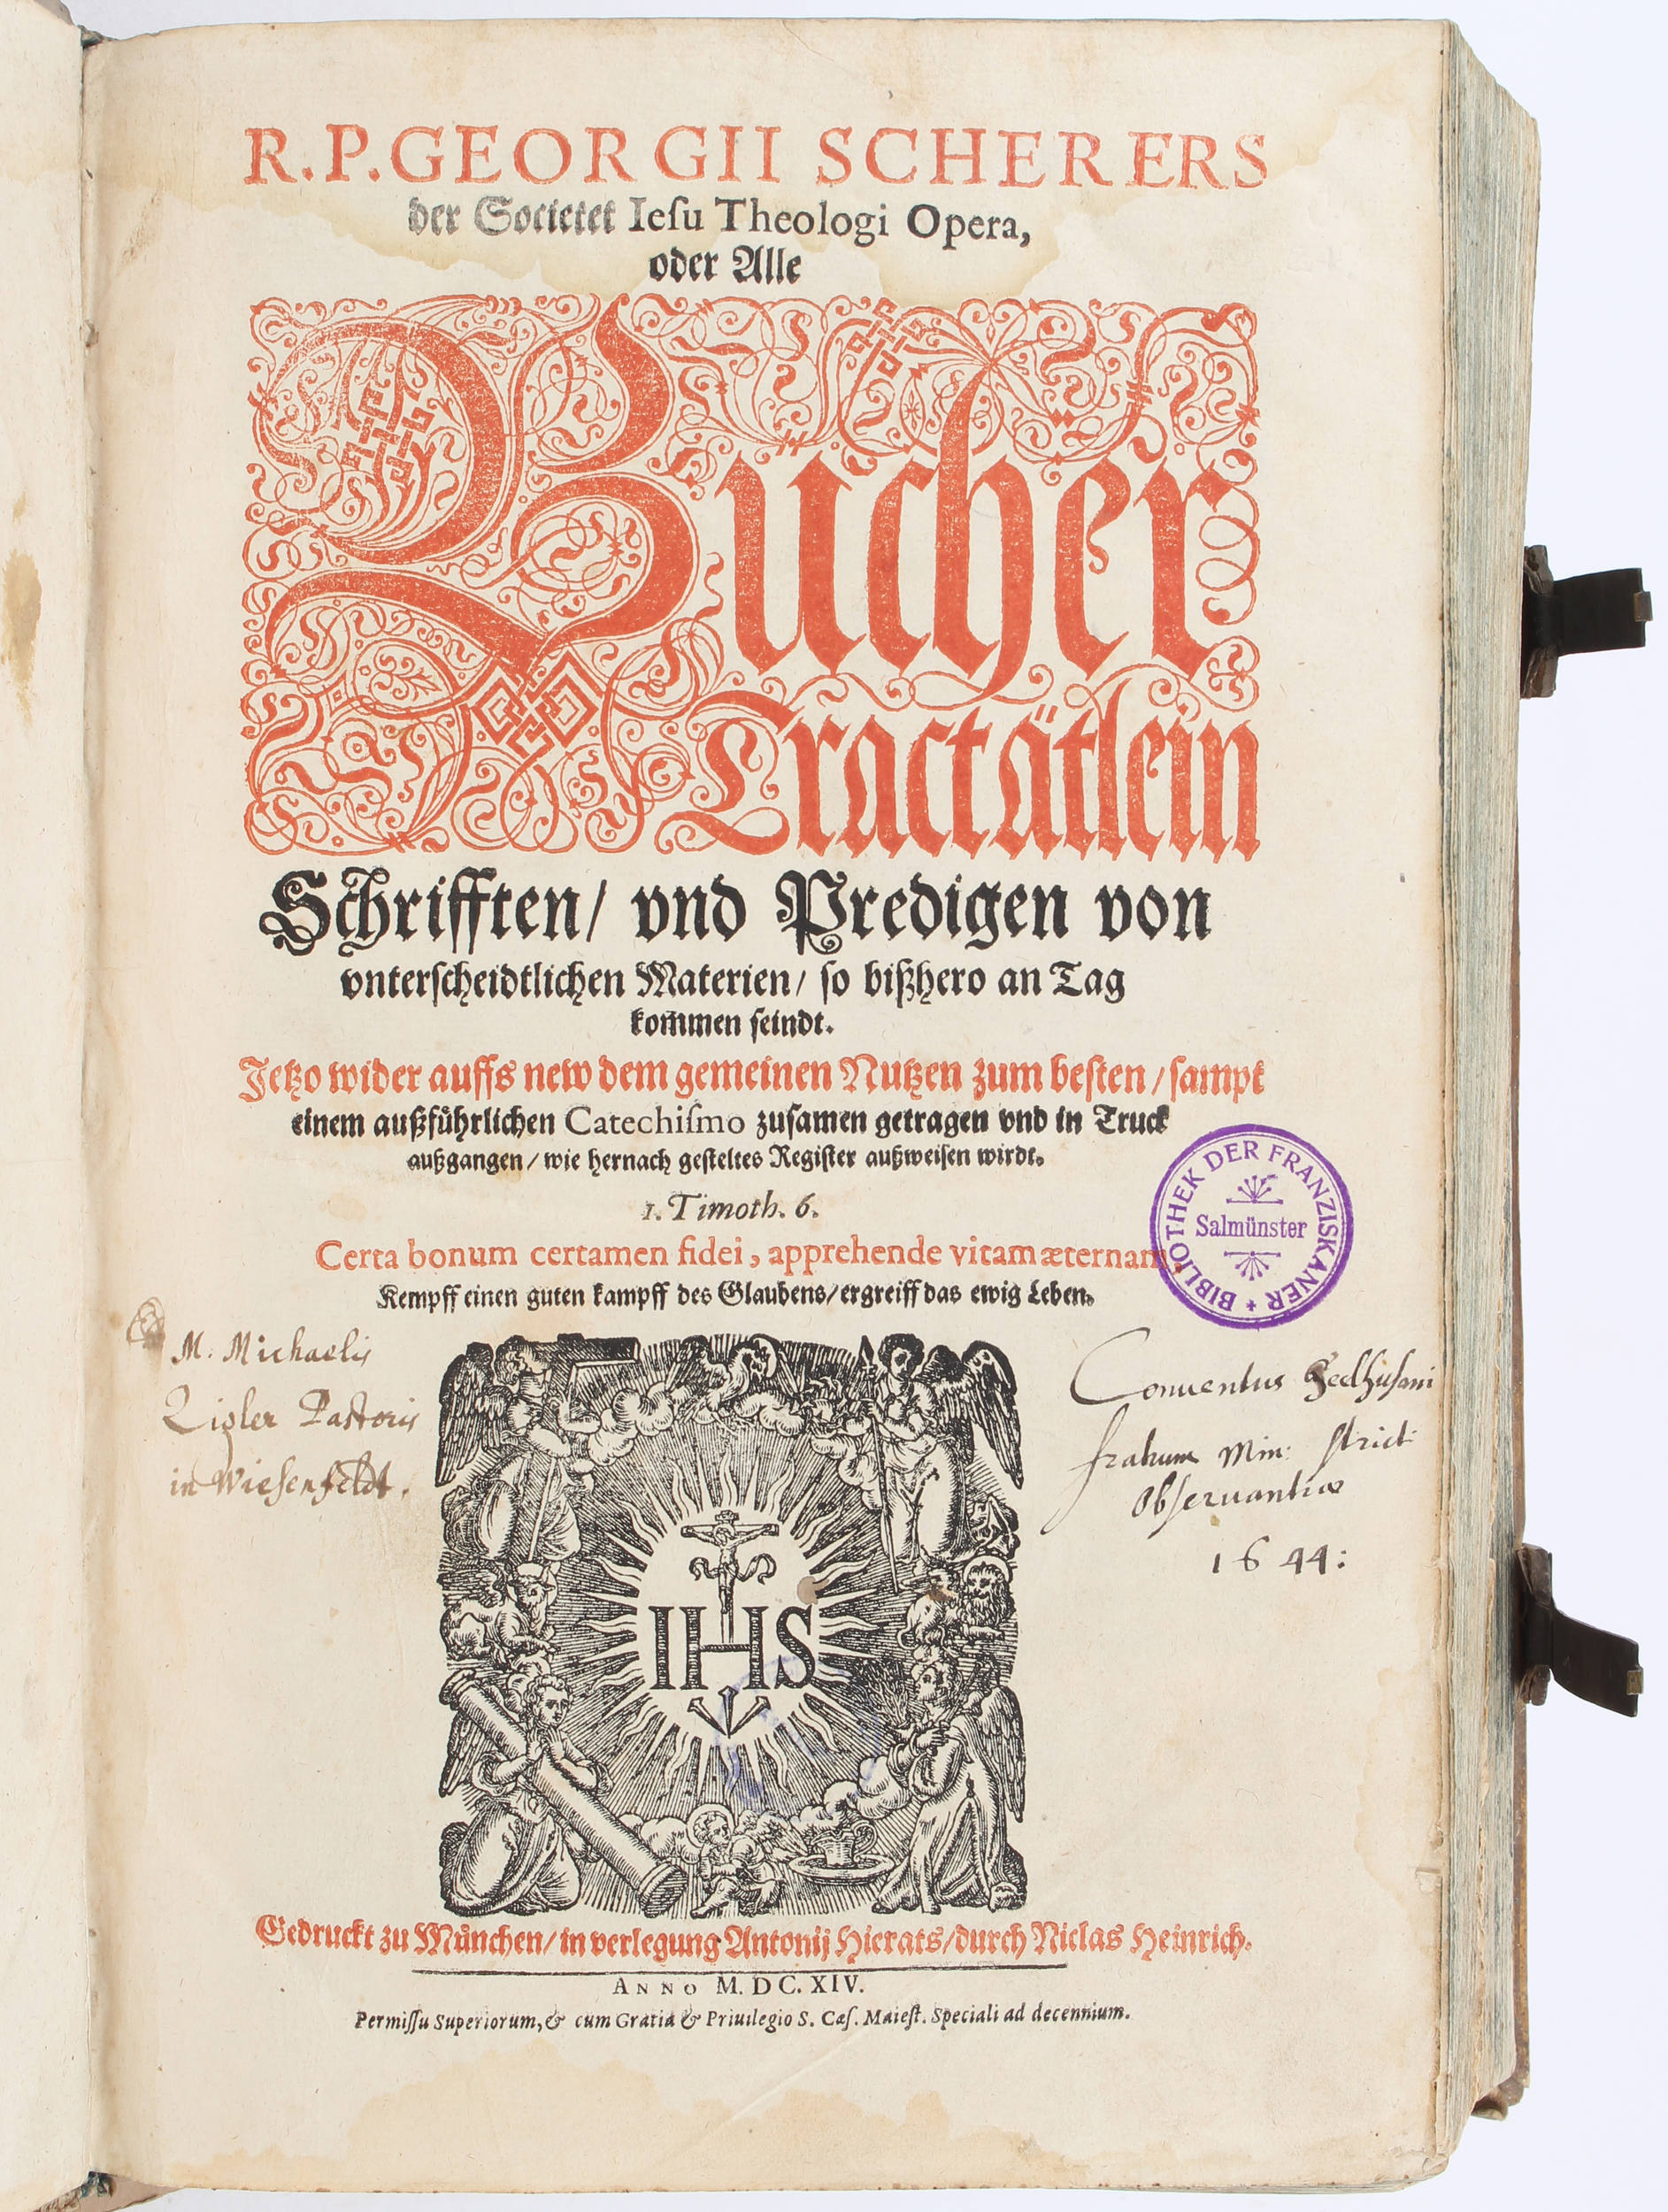 R. P. GEORGII SCHERERS
der Societet Iesu Theologi Opera,
oder Alle
Bücher
Tractätlein
Schrifften/ vnd Predigen von
vnterscheidtlichen Materien/ so bißhero an Tag
kom̃men seindt.
Jetzo wider auffs new dem gemeinen Nutzen zum besten/ sampt
einem außführlichen Catechiſmo zuſamen getragen vnd in Truck
außgangen/ wie hernach geſteltes Regiſter außweiſen wirdt.
1. Timoth. 6.
Certa bonum certamen fidei, apprehende vitam æternam.
Kempff einen guten kampff des Glaubens/ ergreiff das ewig Leben.
BIBLIOTHEK DER FRANZISKANER
Salmünster
M. Michaelis
Zigler Pastoris
in Wiesenfeldt.
Conuentus Geelhusani
fratrum Min: strict:
Obseruantiae
1644:
IHS
Gedruckt zu München/ in verlegung Antonij Hierats/ durch Niclas Heinrich.
ANNO M. DC. XIV.
Permiſſu Superiorum, & cum Gratia & Priuilegio S. Cæſ. Maieſt. Speciali ad decennium.